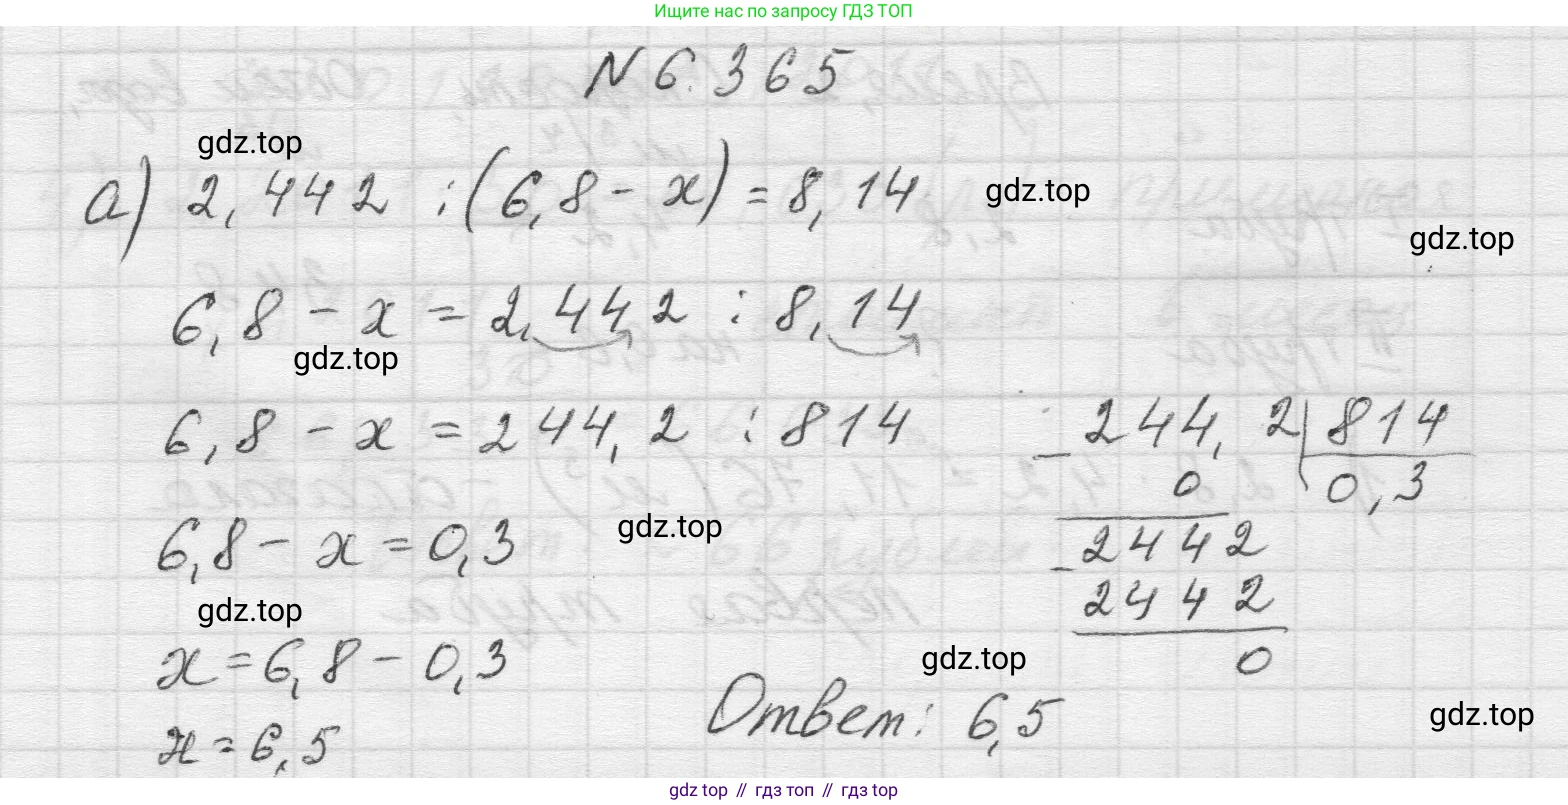 Ищите нас по запросу ГДЗ ТОП
N 6.365
gdz.top
а) 2,442 : (6,8 - x) = 8,14
gdz.top
gdz.top
6,8 - x = 2,442 : 8,14
gdz.top
6,8 - x = 244,2 : 814
6,8 - x = 0,3
gdz.top
gdz.top
x = 6,8 - 0,3
x = 6,5
- 244,2 | 814
0 0,3
- 2442
2442
0
gdz.top
Ответ: 6,5
gdz.top
gdz top // гдз топ // гдз top